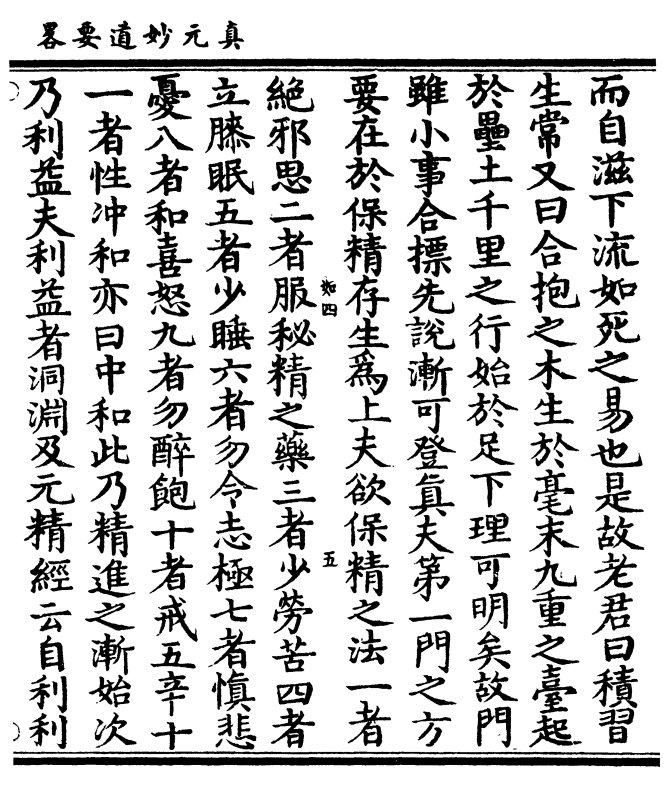 真元妙道要畧
而自滋下流如死之易也是故老君曰積習
生常又曰合抱之木生於毫末九重之臺起
於壘土千里之行始於足下理可明矣故門
雖小事合摽先説漸可登眞夫第一門之方
要在於保精存生爲上夫欲保精之法一者
如四
五
絕邪思二者服秘精之藥三者少勞苦四者
立膝眠五者少睡六者勿令志極七者慎悲
憂八者和喜怒九者勿醉飽十者戒五辛十
一者性冲和亦曰中和此乃精進之漸始次
乃利益夫利益者洞淵及元精經云自利利